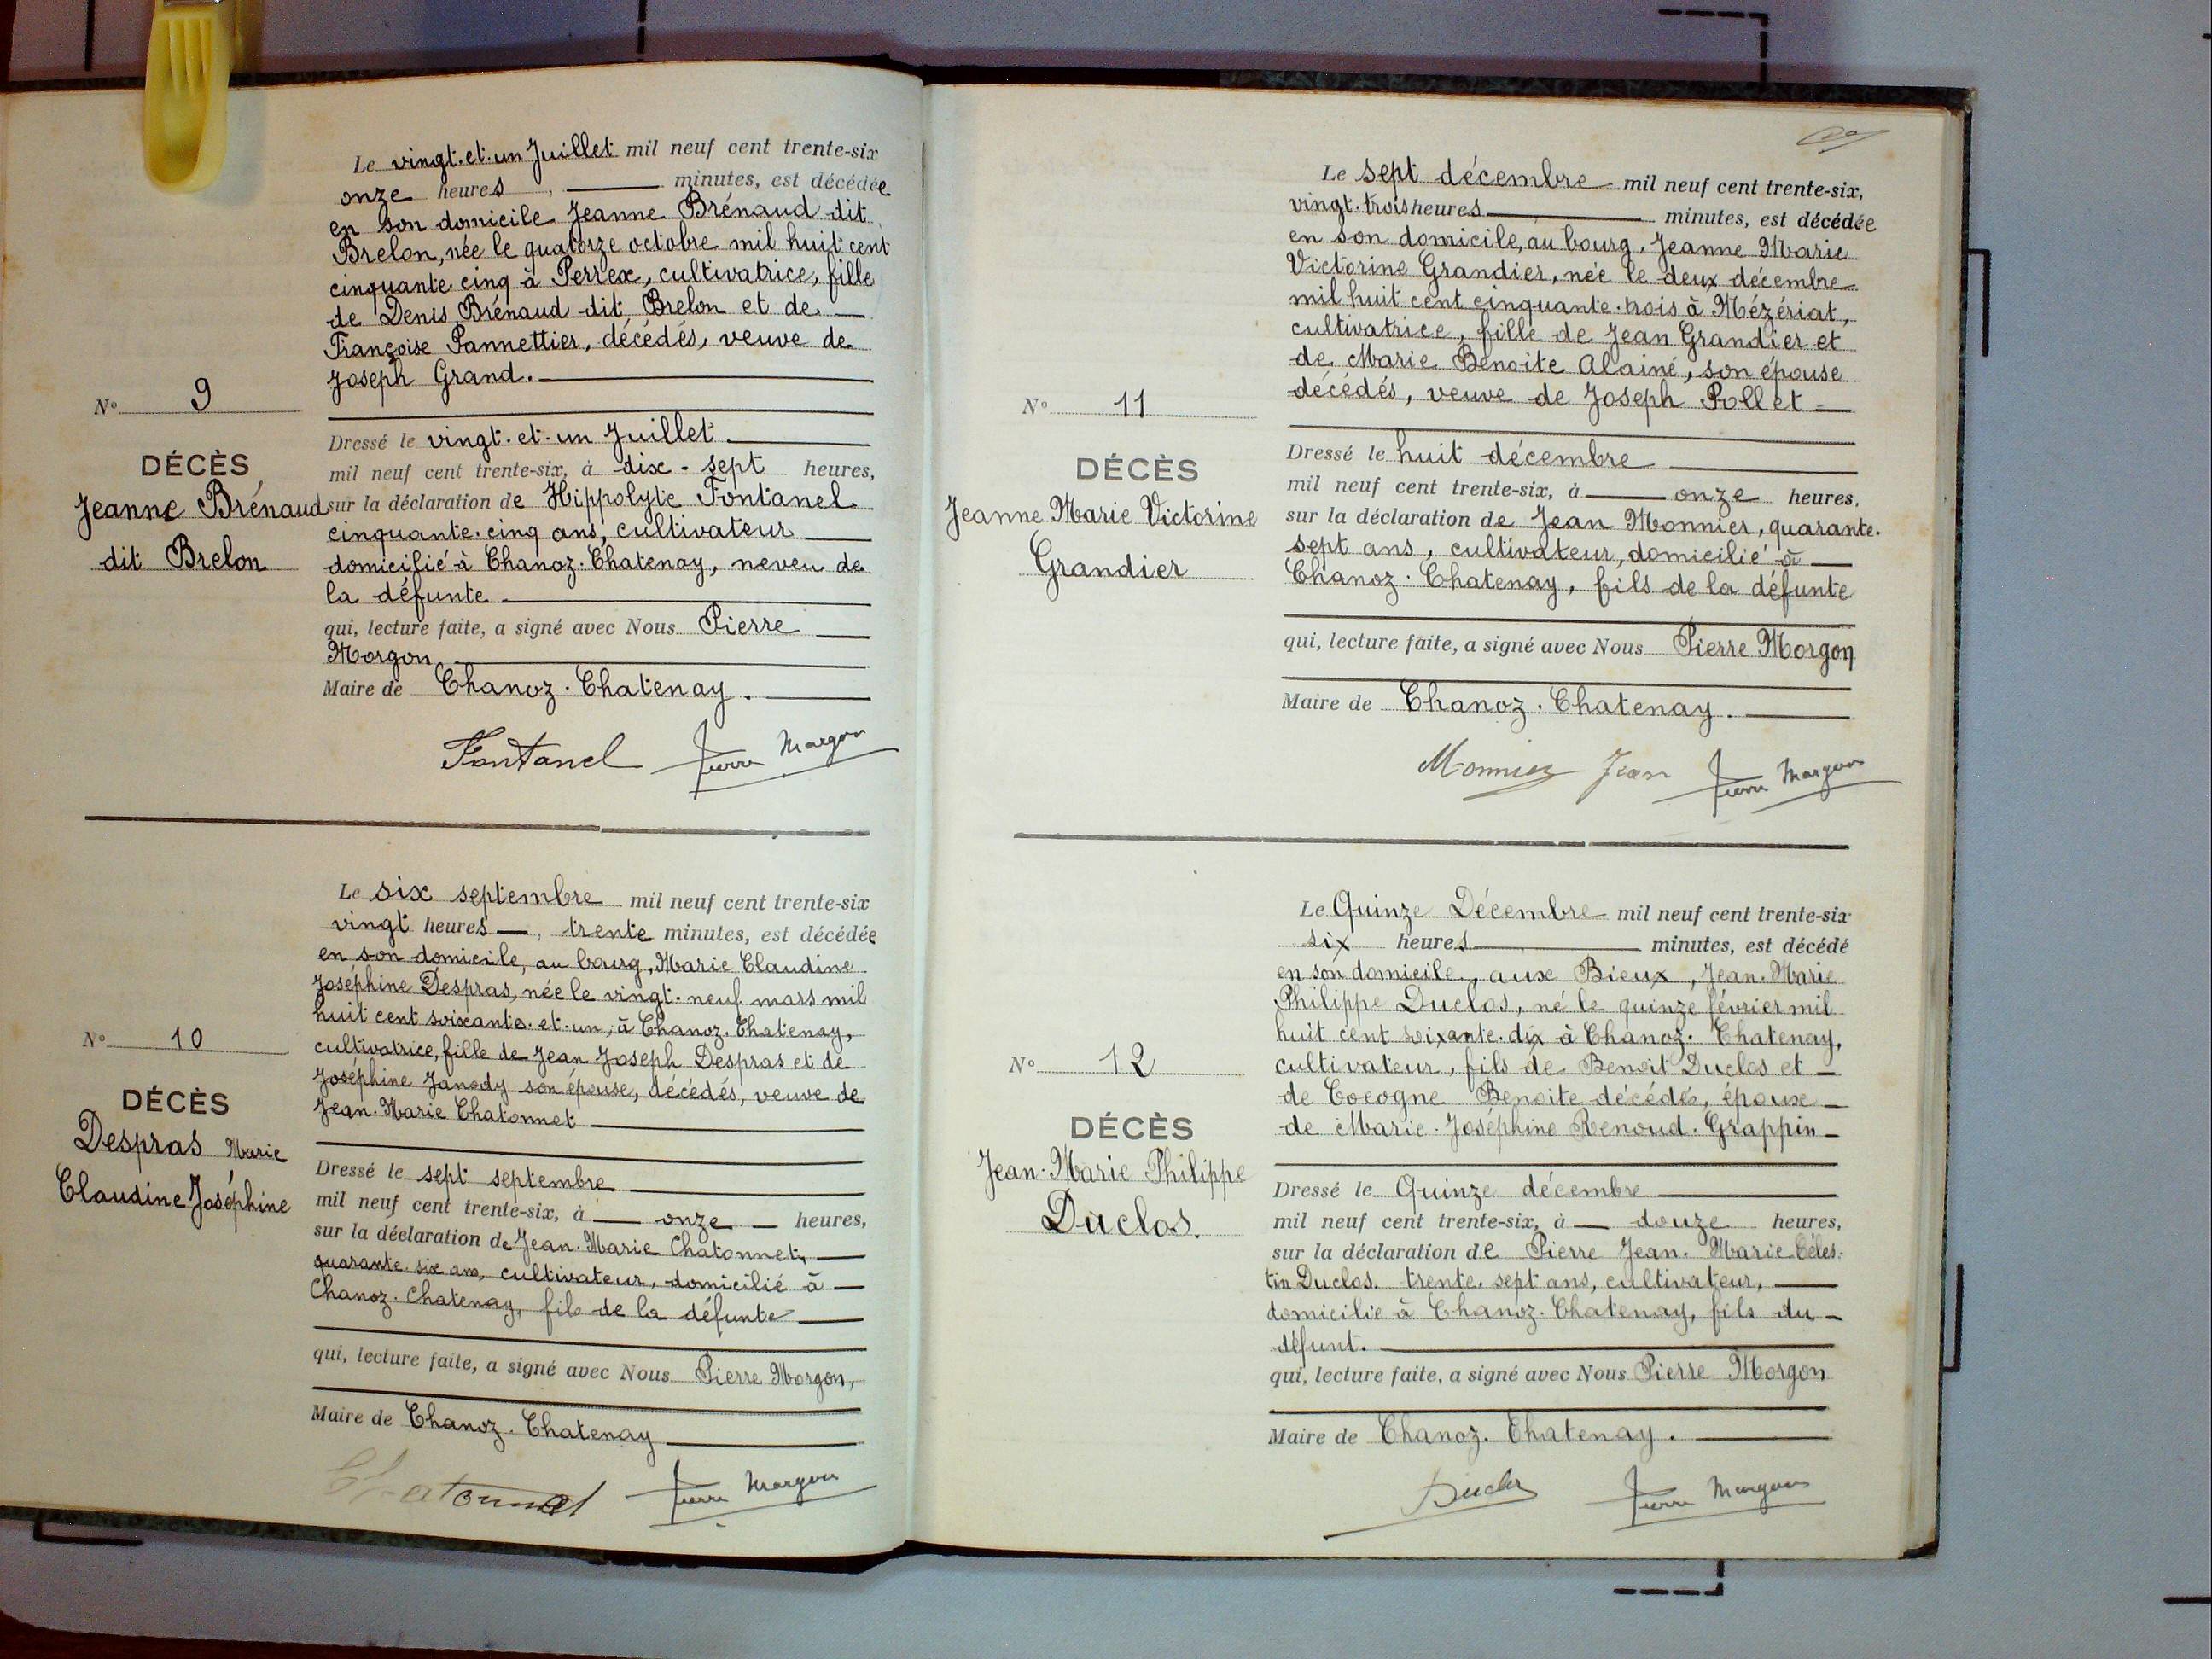 Le vingt-et-un Juillet mil neuf cent trente-six
onze heures, minutes, est décédée
en son domicile Jeanne Brénaud dit
Brelon, née le quatorze octobre mil huit cent
cinquante cinq à Perrex, cultivatrice, fille
de Denis Brénaud dit Brelon et de
Françoise Pannettier, décédés, veuve de
Joseph Grand.
N° 9
DÉCÈS
Jeanne Brénaud
dit Brelon
Dressé le vingt-et-un Juillet
mil neuf cent trente-six, à dix-sept heures,
sur la déclaration de Hippolyte Fontanel
cinquante-cinq ans, cultivateur
domicilié à Chanoz-Chatenay, neveu de
la défunte
qui, lecture faite, a signé avec Nous Pierre
Morgon
Maire de Chanoz-Chatenay.
Fontanel Pierre Morgon
Le six septembre mil neuf cent trente-six
vingt heures, trente minutes, est décédée
en son domicile, au bourg, Marie Claudine
Joséphine Despras, née le vingt-neuf mars mil
huit cent soixante-et-un, à Chanoz-Chatenay,
cultivatrice, fille de Jean Joseph Despras et de
Joséphine Janody son épouse, décédés, veuve de
Jean-Marie Chatonnet
N° 10
DÉCÈS
Despras Marie
Claudine Joséphine
Dressé le sept septembre
mil neuf cent trente-six, à onze heures,
sur la déclaration de Jean-Marie Chatonnet,
quarante-six ans, cultivateur, domicilié à
Chanoz-Chatenay, fils de la défunte
qui, lecture faite, a signé avec Nous Pierre Morgon,
Maire de Chanoz-Chatenay
Chatonnet Pierre Morgon
Le sept décembre mil neuf cent trente-six,
vingt-trois heures minutes, est décédée
en son domicile, au bourg, Jeanne Marie
Victorine Grandier, née le deux décembre
mil huit cent cinquante-trois à Mézériat,
cultivatrice, fille de Jean Grandier et
de Marie Benoite Alainé, son épouse
décédés, veuve de Joseph Pollet
N° 11
DÉCÈS
Jeanne Marie Victorine
Grandier
Dressé le huit décembre
mil neuf cent trente-six, à onze heures,
sur la déclaration de Jean Monnier, quarante-
sept ans, cultivateur, domicilié à
Chanoz-Chatenay, fils de la défunte
qui, lecture faite, a signé avec Nous Pierre Morgon
Maire de Chanoz-Chatenay.
Monnier Jean Pierre Morgon
Le Quinze Décembre mil neuf cent trente-six
six heures minutes, est décédé
en son domicile, aux Bieux, Jean-Marie
Philippe Duclos, né le quinze février mil
huit cent soixante-dix à Chanoz-Chatenay,
cultivateur, fils de Benoit Duclos et
de Cocogne Benoite décédés, époux
de Marie-Joséphine Renoud-Grappin
N° 12
DÉCÈS
Jean-Marie Philippe
Duclos.
Dressé le Quinze décembre
mil neuf cent trente-six, à douze heures,
sur la déclaration de Pierre Jean-Marie Céles-
tin Duclos, trente-sept ans, cultivateur,
domicilié à Chanoz-Chatenay, fils du
défunt.
qui, lecture faite, a signé avec Nous Pierre Morgon
Maire de Chanoz-Chatenay.
Duclos Pierre Morgon